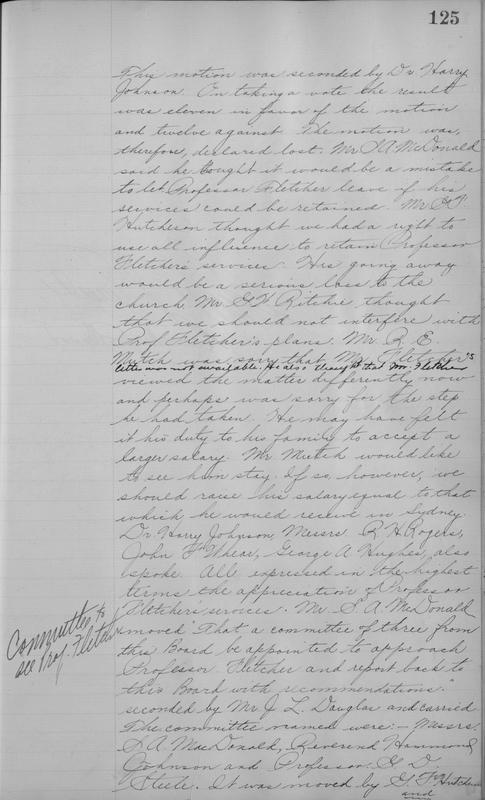 125
This motion was seconded by Dr. Harry
Johnson. On taking a vote the result
was eleven in favor of the motion
and twelve against. The motion was,
therefore, declared lost. Mr. S A McDonald
said he tought it would be a mistake
to let Professor Fletcher leave if his
services could be retained. Mr. G F
Hutcheson thought we had a right to
use all influence to retain Professor
Fletcher's services. His going away
would be a serious loss to the
church. Mr. G F Ritchie thought
that we should not interfere with
Prof. Fletcher's plans. Mr. R. E.
Mutch was sorry that Mr. Fletcher's
letter was not available. He also thought that Mr. Fletcher
viewed the matter differently now
and perhaps was sorry for the step
he had taken. He may have felt
it his duty to his family to accept a
larger salary. Mr. Mutch would like
to see him stay. If so, however, we
should raise his salary equal to that
which he would receive in Sydney.
Dr. Harry Johnson, Messrs R. H. Rogers,
John F Whear, George A Hughes, also
spoke. All expressed in the highest
terms the appreciation of Professor
Fletcher's services. Mr. S. A. MacDonald
moved "That a committee of three from
this Board be appointed to approach
Professor Fletcher and report back to
this Board with recommendations."
seconded by Mr J L. Douglas and carried
The committee named were:- Messrs.
S A. MacDonald, Reverend Hammond
Johnson and Professor. G. D.
Steele. It was moved by G. F Hutcheson
and
Committee to
see Prof. Fletcher